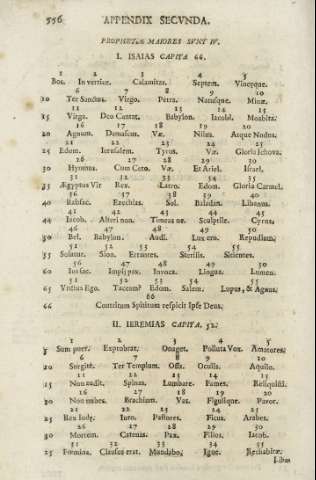 556 APPENDIX SECVNDA.
PROPHETÆ MAIORES SVNT IV.
I. ISAIAS CAPITA 66.
1 2 3 4 5
Bos. In vertice. Calamitas. Septem. Vineæque.
6 7 8 9 10
10 Ter Sanctus. Virgo. Petra. Natusque. Minæ.
11 12 13 14 15
15 Virga. Deo Cantat. Babylon. Iacobi. Moabitæ.
16 17 18 19 20
20 Agnum. Damascum. Væ. Nilus. Atque Nudus.
21 22 23 24 25
25 Edom. Ierusalem. Tyrus. Væ. Gloria Iehova.
26 27 28 29 30
30 Hymnus. Cum Ceto. Væ. Et Ariel. Israel.
31 32 33 34 35
35 Ægyptus Vir Rex. Edom. Gloria Carmel.
36 37 38 39 40
40 Rabsac. Ezechias. Sol. Baladan. Libanum.
41 42 43 44 45
Iacob. Alteri non. Timeas ne. Sculptile. Cyrus.
46 47 48 49 50
50 Bel. Babylon. Audi. Lux ero. Repudium.
51 52 53 54 55
55 Solatur. Sion. Errantes. Sterilis. Sitientes.
56 57 58 59 60
60 Ius fac. Impij pax. Invoca. Lingua. Lumen.
61 62 63 64 65
65 Vnctus Ego. Taceam? Edom. Salem. Lupus, & Agnus.
66
66 Contritum Spiritum respicit Ipse Deus.
II. IEREMIAS CAPITA. 52.
1 2 3 4 5
5 Sum puer. Exprobrat. Onager. Polluta Vox. Amatores.
6 7 8 9 10
10 Surgite. Ter Templum. Ossa. Oculis. Aquilo.
11 12 13 14 15
15 Non audit. Spinas. Lumbare. Fames. Reliquisti.
16 17 18 19 20
20 Non imbes. Brachium. Vas. Figulique. Pavor.
21 22 23 24 25
25 Rex Iudę. Iusto. Pastores. Ficus. Arabes.
26 27 28 29 30
30 Mortem. Catenis. Pax. Filios. Iacob.
31 32 33 34 35
35 Fœmina. Clausus erat. Mundabo. Igne. Rechabitæ.
Libro